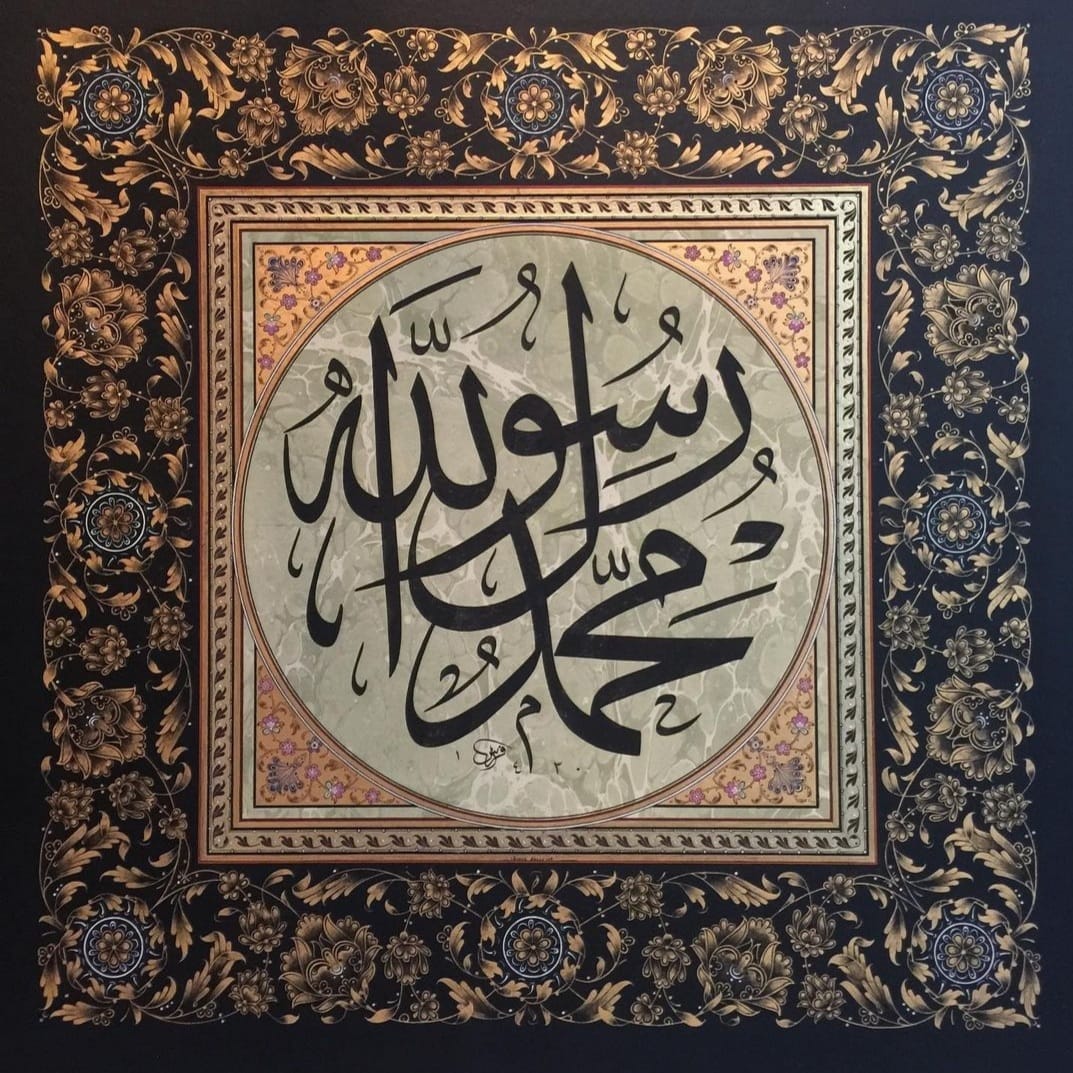 محمد رسول الله
١٤٢٠